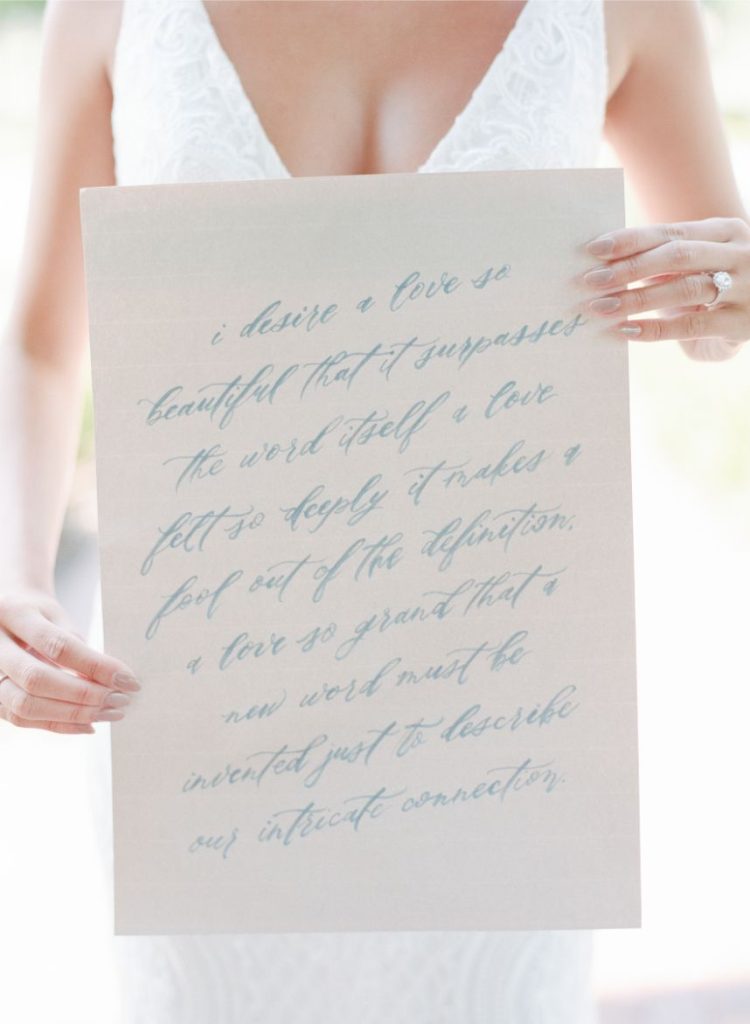 i desire a love so
beautiful that it surpasses
the word itself a love
felt so deeply it makes a
fool out of the definition.
a love so grand that a
new word must be
invented just to describe
our intricate connection.